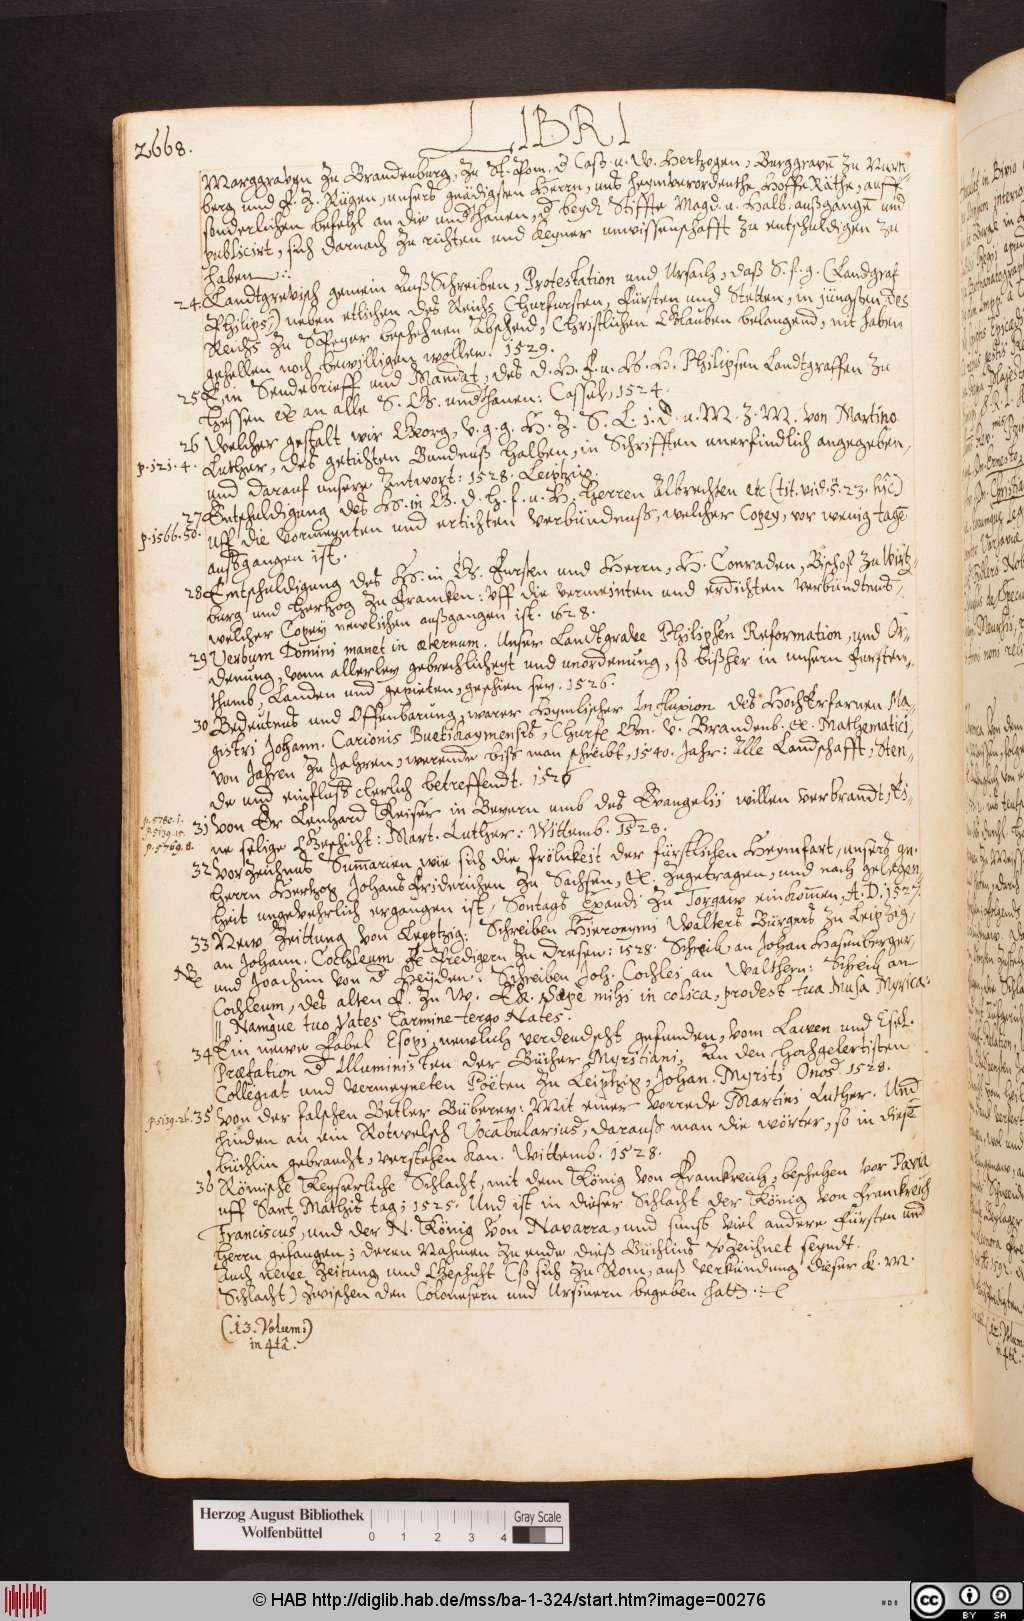 2668.
LIBRI
Marggraven zu Brandenburg, zu St. Pom. d Caß. u. W. Hertzogen, Burggraven zu Nurn-
berg und F. z. Rügen, unsers gnedigsten Herrn, und heymverordenthe Hoffe Räthe, auff
sonderlichen befehl an die underthanen, d beyder Stiffte Magd. u. Halb. außgangen und
publicirt, sich darnach zu richten und keyner unwissenschafft zu entschuldigen zu
haben.
24. Landtgrevisch gemein AußSchreiben, Protestation und Ursach, daß S. f. g. (Landgraf
Philips) neben etlichen des Reichs Churfürsten, Fürsten und Stetten, in jüngsten des
Reichs zu Speyer beschehnen Abscheid, Christlichen Glauben belangend, nit haben
gehellen noch bewilligen wollen. 1529.
25 Ein Sendebrieff und Mandat, des d. H. F. u. H. H. Philipsen Landtgraffen zu
Hessen etc an alle S. G. underthanen: Cassel, 1524.
26 Welcher gestalt wir Georg, v. g. g. H. z. S. L. i. D u. M. z. M. von Martino
p. 121. 4. Luther, des getichten Bundnuß halben, in Schrifften unerfindlich angegeben,
und darauf unsere Antwort: 1528. Leiptzig.
27 Entschuldigung des H. in G. d. H. f. u. H. Herren Albrechten etc (tit. vid. 23. hîc)
p. 1566. 50. uff die vormeynten und ertichten Verbündtnuß, welcher Copey, vor wenig tagen
außgangen ist.
28 Entschuldigung des H. in G. Fursten und Herrn, H. Conraden, Bischof zu Wirtz-
burg und Hertzog zu Francken: Uff die vermeinten und erdichten Verbundtnus,
welcher Copey newlichen außgangen ist. 1628.
29 Verbum Domini manet in æternum. Unser Landtgrave Philipsen Reformation, und Or-
denung, vonn allerley gebrechlicheyt und unordenung, so bißher in unsern Fursten-
thumb, Landen und gepieten, geschien sey. 1526.
30 Bedeutnus und Offenbarung, warer Hymlischer Influxion des HochErfarnen Ma-
gistri Johann. Carionis Buetikaymensis, Churfe Gn. v. Brandenb. etc. Mathematici,
von Jahren zu Jahren, werende biß man schreibt, 1540. Jahr: Alle Landschafft, Sten-
de und einfluß clerlich betreffendt. 1526
p. 5780. 1.
p. 5139. 15.
p. 5769. 8.
31 Von Er Lenhard Keiser in Beyern umb des Evangelij willen verbrandt, Ei-
ne selige Geschicht: Mart. Luther: Wittemb. 1528.
32 Vorzeichnus Summarien, wie sich die frölickeit der fürstlichen Heymfart, unsers gn.
Herrn Hertzog Johans Friderichen zu Sachsen, etc. zugetragen, und nach gelegen
heit ungevehrlich ergangen ist, Sontags Exaudi zu Torgaw einkommen, A. D. 1527.
33 New Zeittung von Leyptzig: Schreiben Hieronymi Walters Bürgers zu Leiptzig,
an Johann. Cochleum Predigern zu Dresen: 1528. Schreib. an Johan Hasenberger,
NB
und Joachim von d Heyden. Schreiben Joh. Cochlei an Walthern: Schreib an
Cochleum, des alten Sæpe mihi in colica, prodest tua Musa Myrica:
" Namque tuo Vates Carmine tergo Nates.
34 Ein newe Fabel Esopi, newlich verdeudscht gefunden, vom Lawen und Esel.
Præfation d Illuministen der Bücher Myritiani, An den Hochgelertisten
Collegiat und vermeyneten Poëten zu Leiptzig, Johan. Myriti Onos 1528.
p. 5139. 26. 35 Von der falschen Betler Büberey: Mit einer Vorrede Martini Luther. Und
hinden an ein Rotwelsch Vocabularius, darauß man die wörter, so in diesem
büchlin gebraucht, verstehen kan. Wittemb. 1528.
36 Römische Keyserliche Schlacht, mit dem König von Franckreich, beschehen vor Pavia
uff Sant Mathis tag, 1525. Und ist in dieser Schlacht der König von Franckreich
Franciscus, und der N. König von Navarra, und sunst viel andere Fürsten und
Herrn gefangen; deren Nahmen zu ende dieß Büchlins vzeichnet seyndt.
Auch newe Zeitung und Geschicht (so sich zu Rom, auß Verkündung dieser K. M.
Schlacht) zwischen den Colonesern und Ursinern begeben hatt.
(13. Volum:)
in 4tâ.
Herzog August Bibliothek
Wolfenbüttel
0 1 2 3 4
Gray Scale
© HAB http://diglib.hab.de/mss/ba-1-324/start.htm?image=00276
cc BY SA